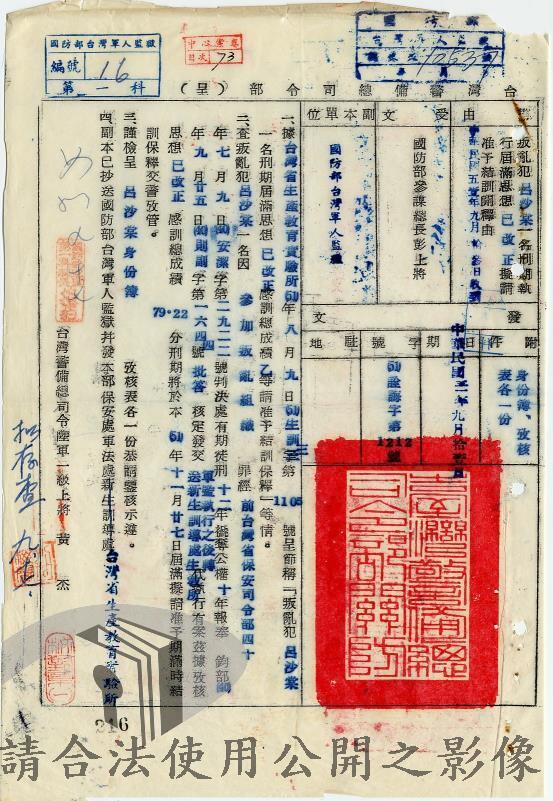 國防部台灣軍人監獄
編號 16
第一科
目次 73
台灣警備總司令部(呈)
事由
叛亂犯呂沙棠一名刑期執行屆滿思想已改正擬請准予結訓開釋由
受文
國防部參謀總長彭上將
副本單位
國防部台灣軍人監獄
發文
附件
身份簿、攷核表各一份
日期
中華民國
字號
1212
駐地
一、據台灣省生產教育實驗所50年八月九日
1105
號呈節稱「叛亂犯呂沙棠
一名刑期屆滿思想已改正感訓總成績乙等請准予結訓保釋」等情。
二、查叛亂犯呂沙棠一名因參加叛亂組織罪經前台灣省保安司令部四十
年七月九日
字第二九二二號判決處有期徒刑十二年褫奪公權十年報奉鈞部
年九月廿五日
字第一六四號批答核定發交
軍監執行之後轉送新生訓導處
代執行有案茲據攷核
思想已改正感訓總成績79.22分刑期將於本50年十一月廿七日屆滿擬請准予期滿時結
訓保釋交警攷管。
三、謹檢呈呂沙棠身份簿攷核表各一份恭請鑒核示遵。
四、副本已抄送國防部台灣軍人監獄并發本部保安處軍法處新生訓導處台灣省生產教育實驗所
台灣警備總司令陸軍一級上將黃杰
擬存查
216
請合法使用公開之影像